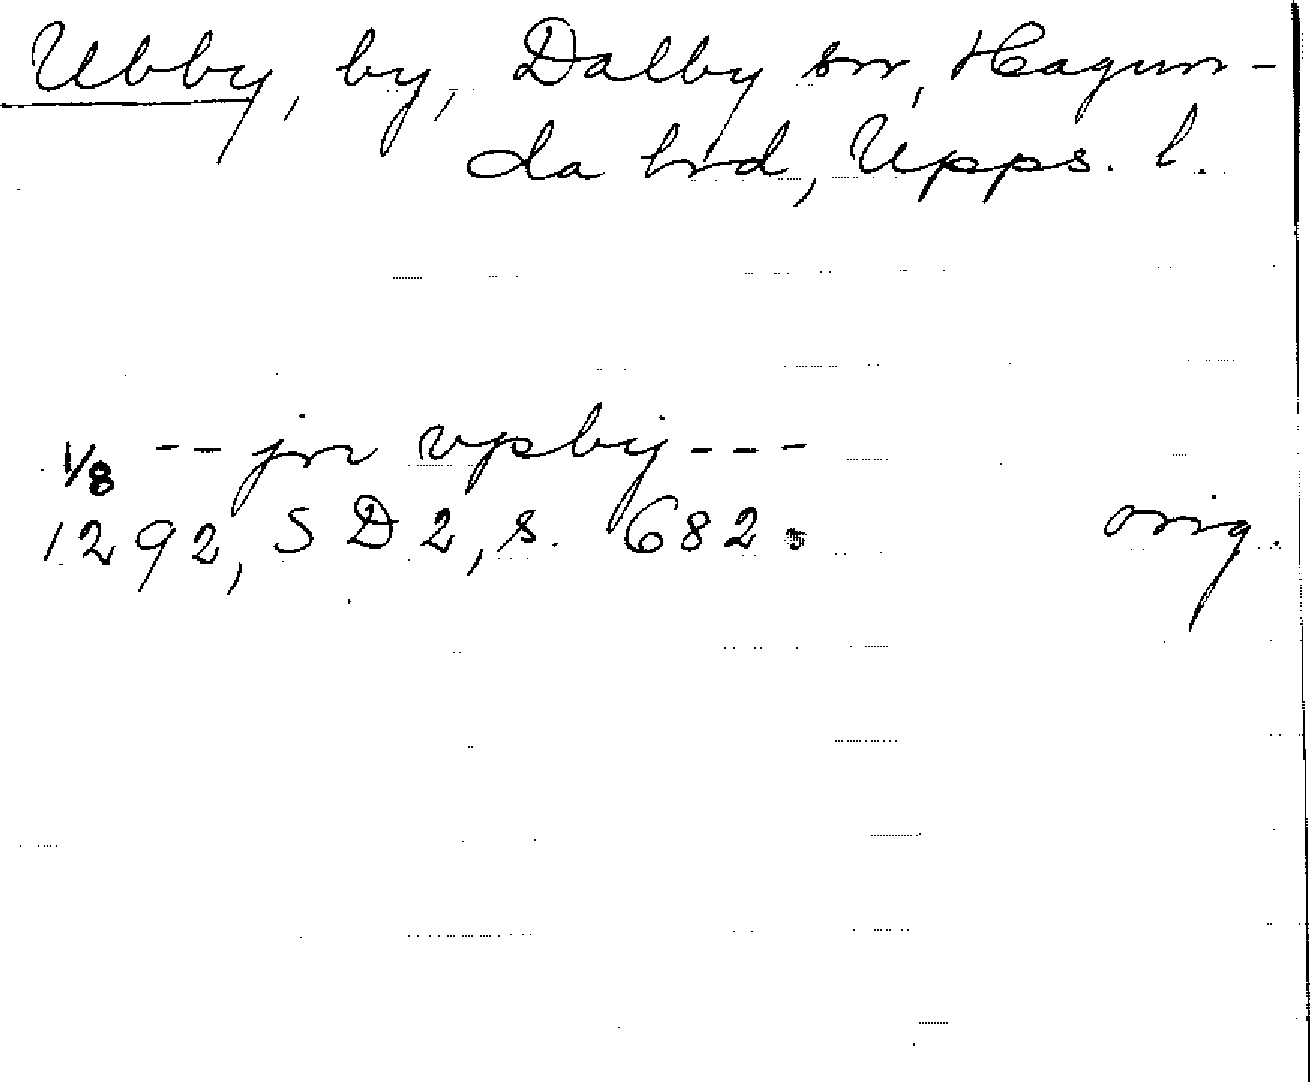 Ubby, by, Dalby sn, Hagun-
da hrd, Upps. l.
1/8 -- jn vpsbij ---
1292, SD 2, s. 682. orig.